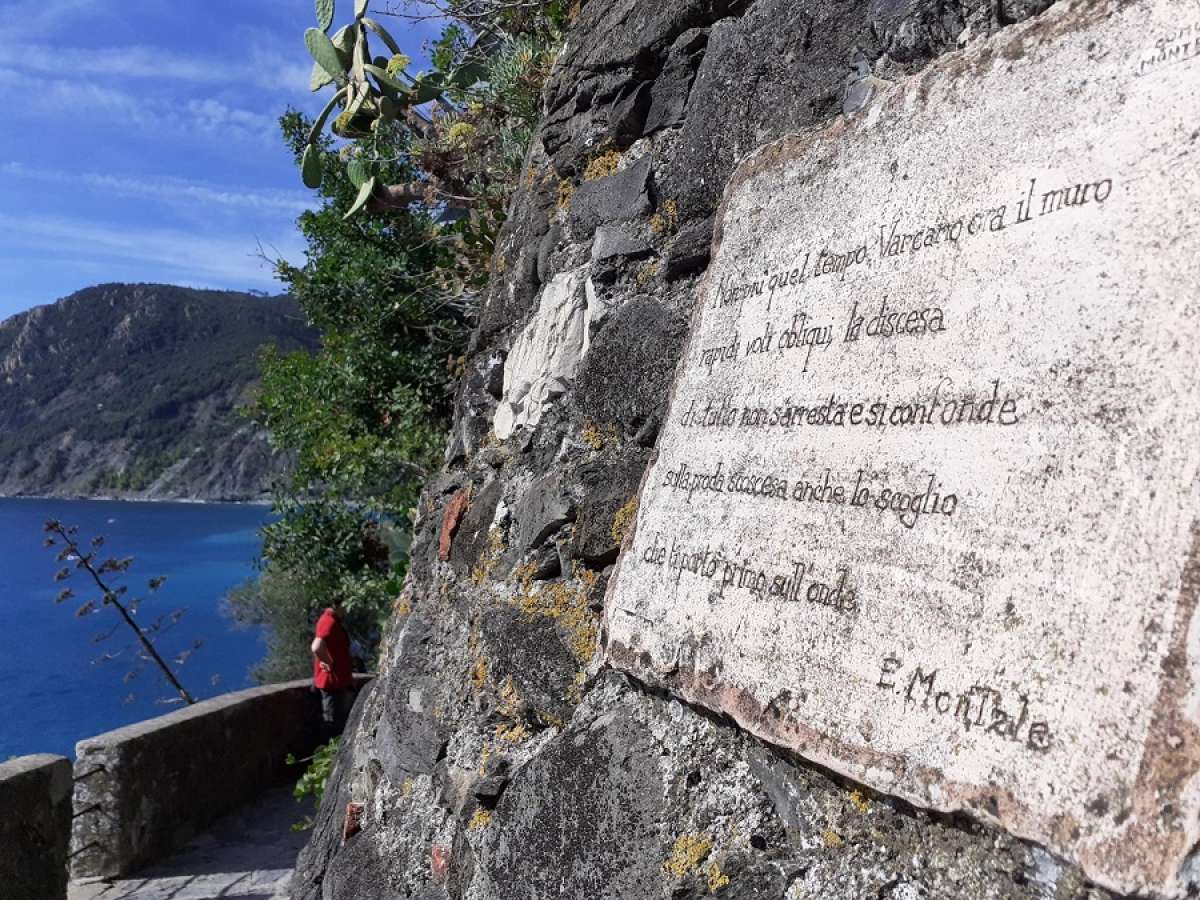 quel tempo. Varcano ora il muro
rapidi voli obliqui, la discesa
di tutto non s'arresta e si confonde
sulla proda scoscesa anche lo scoglio
che ti portò primo sull'onde.
E. MonTale